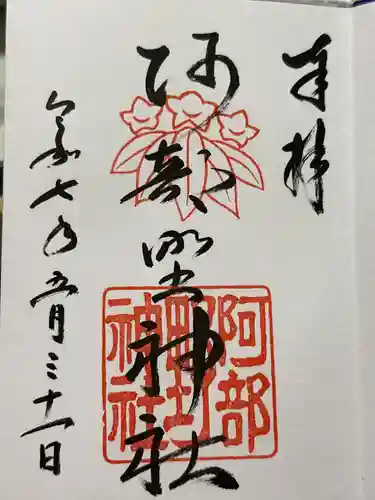 奉拝
阿部野神社
阿部
野
神社
令和七年五月三十一日